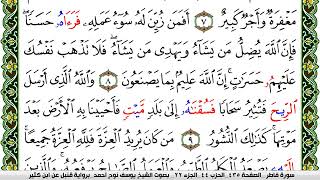 مَغْفِرَةٌ وَأَجْرٌ كَبِيرٌ ٧ أَفَمَن زُيِّنَ لَهُ سُوءُ عَمَلِهِ فَرَءَاهُ حَسَنًا
فَإِنَّ اللَّهَ يُضِلُّ مَن يَشَاءُ وَيَهْدِي مَن يَشَاءُ فَلَا تَذْهَبْ نَفْسُكَ
عَلَيْهِمُ حَسَرَاتٍ إِنَّ اللَّهَ عَلِيمٌ بِمَا يَصْنَعُونَ ٨ وَاللَّهُ الَّذِي أَرْسَلَ
الرِّيحَ فَتُثِيرُ سَحَابًا فَسُقْنَاهُ إِلَى بَلَدٍ مَّيْتٍ فَأَحْيَيْنَا بِهِ الْأَرْضَ بَعْدَ
مَوْتِهَا كَذَٰلِكَ النُّشُورُ ٩ مَن كَانَ يُرِيدُ الْعِزَّةَ فَلِلَّهِ الْعِزَّةُ جَمِيعًا
سورة فاطر الصفحة ٤٣٥ الحزب ٤٤ الجزء ٢٢ بصوت الشيخ يوسف نوح أحمد برواية قنبل عن ابن كثير